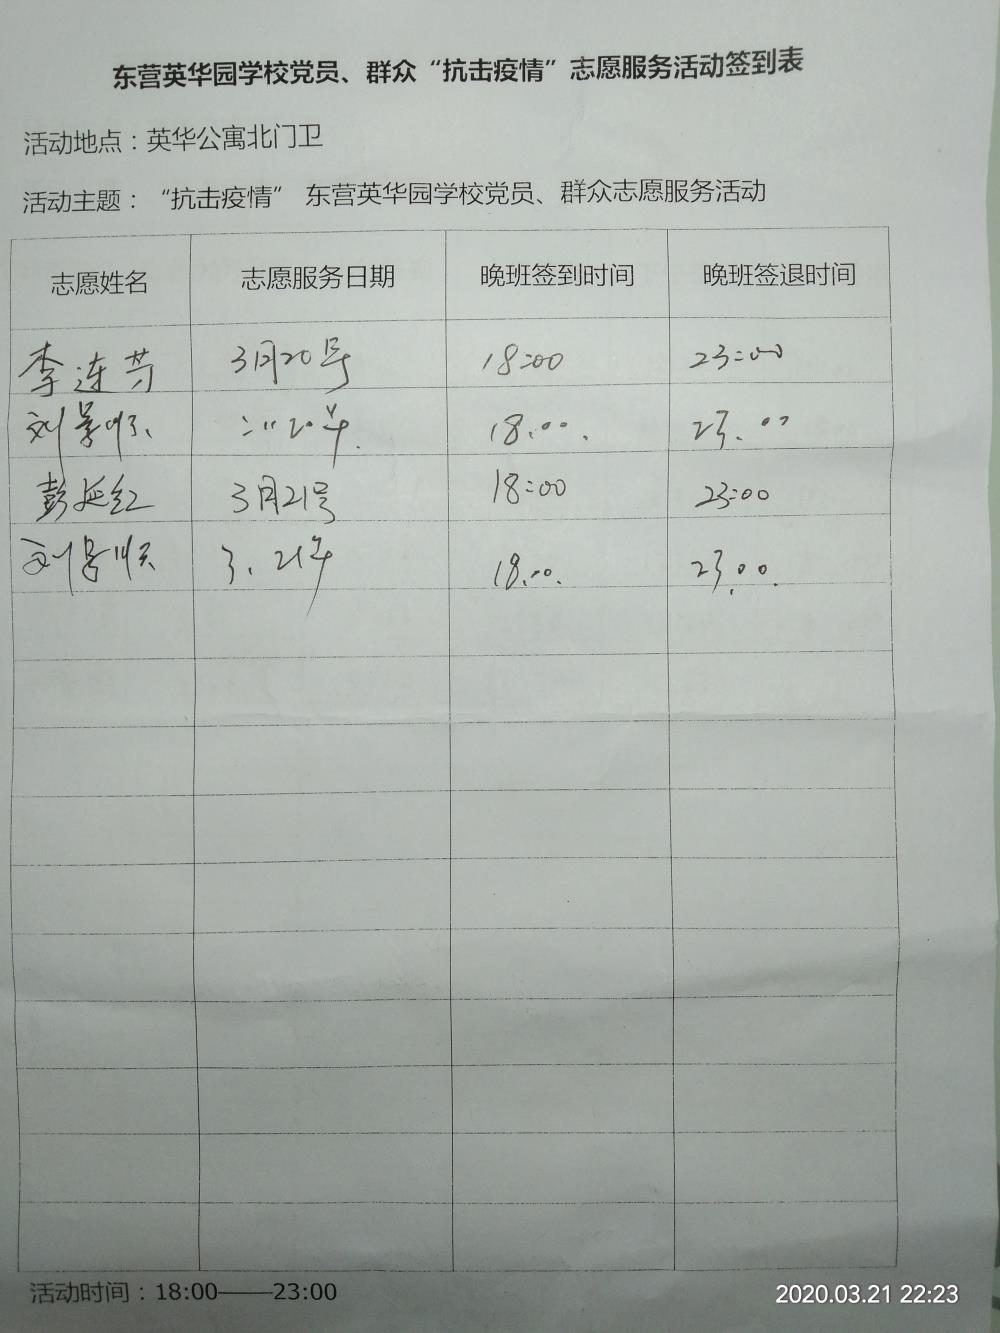 东营英华园学校党员、群众“抗击疫情”志愿服务活动签到表
活动地点：英华公寓北门卫
活动主题：“抗击疫情” 东营英华园学校党员、群众志愿服务活动
志愿姓名 志愿服务日期 晚班签到时间 晚班签退时间
李连芳 3月20号 18:00 23:00
刘景顺 20号 18.00. 23.00
彭延红 3月21号 18:00 23:00
刘景顺 3.21号 18.00. 23.00.
活动时间：18:00——23:00
2020.03.21 22:23